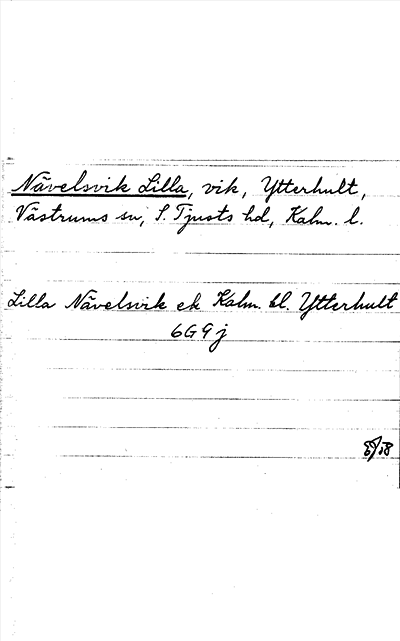 Nävelsvik Lilla, vik, Ytterhult,
Västrums sn, S. Tjusts hd, Kalm. l.
Lilla Nävelsvik ek Kalm. bl. Ytterhult
6G9j